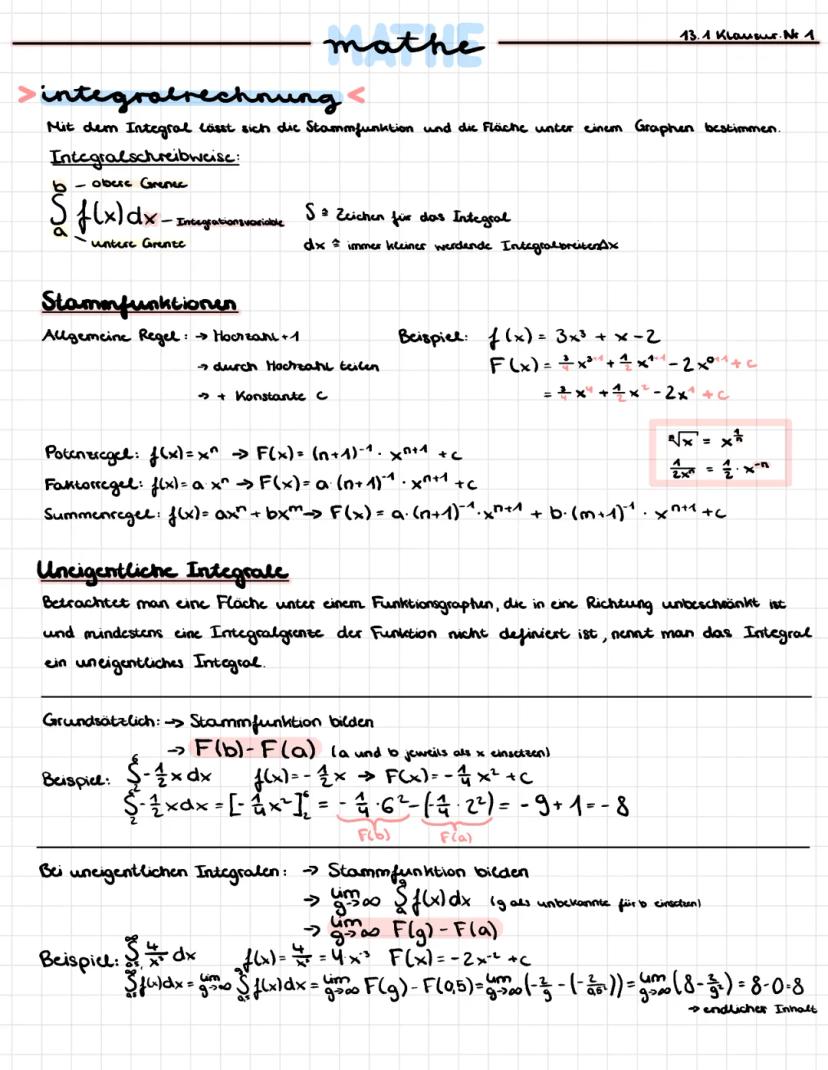 mathe
13.1 Klausur Nr 1
> integralrechnung <
Mit dem Integral lässt sich die Stammfunktion und die Fläche unter einem Graphen bestimmen.
Integralschreibweise:
b – obere Grenze
∫ f(x)dx – Integrationsvariable
a – untere Grenze
S ≙ Zeichen für das Integral
dx ≙ immer kleiner werdende Integralbreiten Δx
Stammfunktionen
Allgemeine Regel: → Hochzahl +1
→ durch Hochzahl teilen
→ + Konstante C
Beispiel: f(x) = 3x³ + x - 2
F(x) = 3/4 x³⁺¹ + 1/2 x¹⁺¹ - 2x⁰⁺¹ + c
= 3/4 x⁴ + 1/2 x² - 2x¹ + c
ⁿ√x = x^(1/n)
1/(2xⁿ) = 1/2 · x⁻ⁿ
Potenzregel: f(x) = xⁿ → F(x) = (n+1)⁻¹ · xⁿ⁺¹ + c
Faktorregel: f(x) = a·xⁿ → F(x) = a·(n+1)⁻¹ · xⁿ⁺¹ + c
Summenregel: f(x) = axⁿ + bxᵐ → F(x) = a·(n+1)⁻¹·xⁿ⁺¹ + b·(m+1)⁻¹ · xⁿ⁺¹ + c
Uneigentliche Integrale
Betrachtet man eine Fläche unter einem Funktionsgraphen, die in eine Richtung unbeschränkt ist
und mindestens eine Integralgrenze der Funktion nicht definiert ist, nennt man das Integral
ein uneigentliches Integral.
Grundsätzlich: → Stammfunktion bilden
→ F(b) - F(a) (a und b jeweils als x einsetzen)
Beispiel: ∫₂⁶ -1/2 x dx f(x) = -1/2 x → F(x) = -1/4 x² + c
∫₂⁶ -1/2 x dx = [-1/4 x²]₂⁶ = -1/4 · 6² - (-1/4 · 2²) = -9 + 1 = -8
F(b) F(a)
Bei uneigentlichen Integralen: → Stammfunktion bilden
→ lim g→∞ ∫ₐᵍ f(x)dx (g als unbekannte für b einsetzen)
→ lim g→∞ F(g) - F(a)
Beispiel: ∫0,5^∞ 4/x³ dx f(x) = 4/x³ = 4·x⁻³ F(x) = -2x⁻² + c
∫0,5^∞ f(x)dx = lim g→∞ ∫0,5^g f(x)dx = lim g→∞ F(g) - F(0,5) = lim g→∞ (-2/g - (-2/0,5²)) = lim g→∞ (8 - 2/g²) = 8-0=8
→ endlicher Inhalt